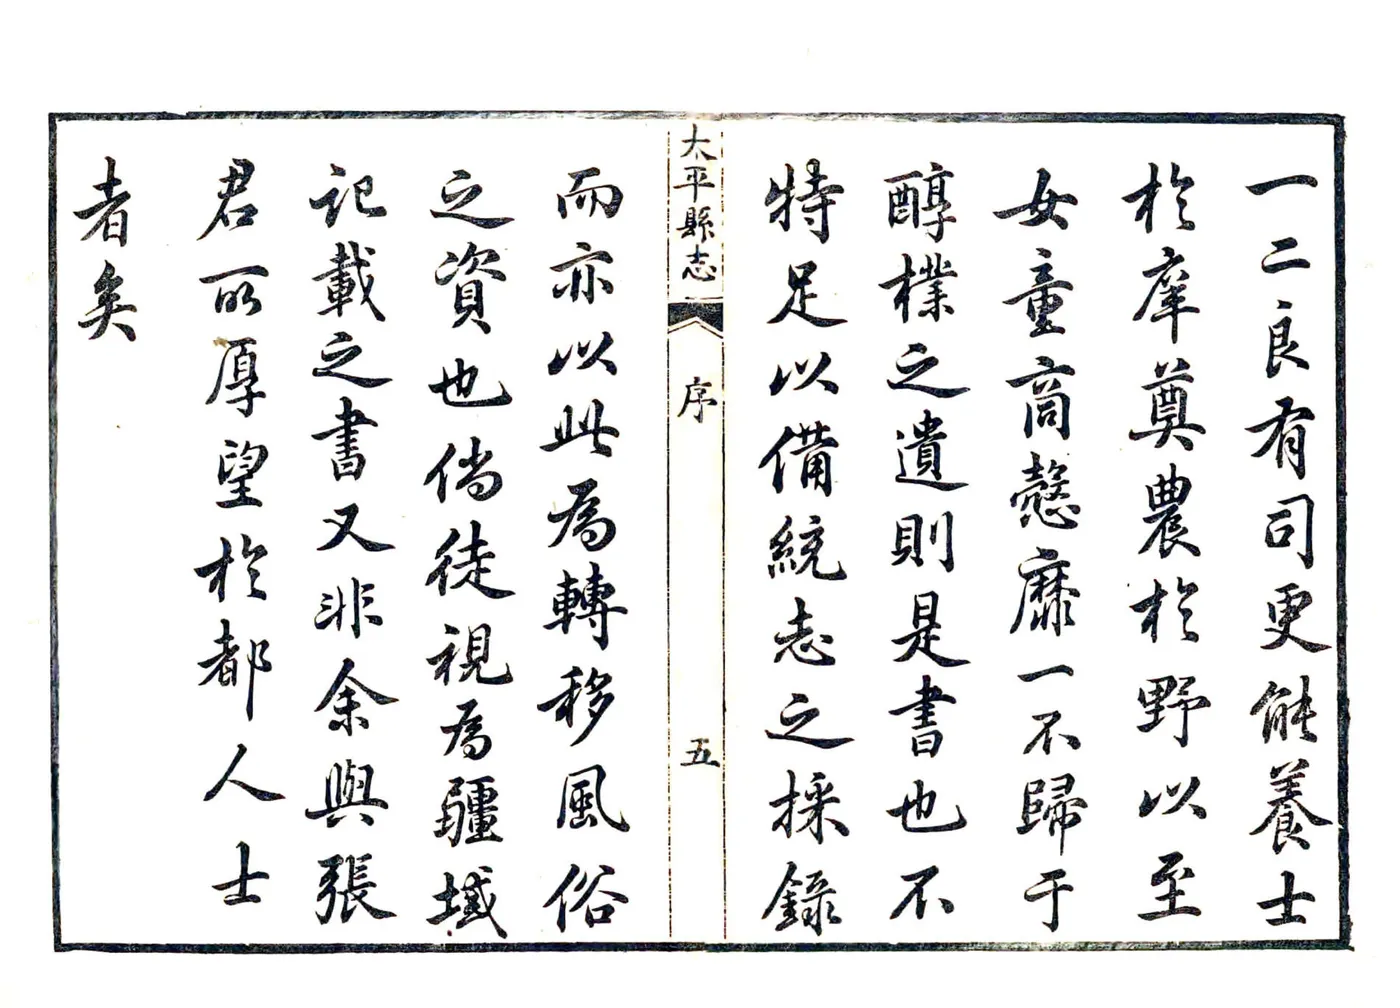 一二良有司更能養士
於庠奠農於野以至
女童商慤靡一不歸于
醇樸之遺則是書也不
特足以備統志之採錄
太平縣志 序 五
而亦以此為轉移風俗
之資也倘徒視為疆域
記載之書又非余與張
君所厚望於都人士
者矣